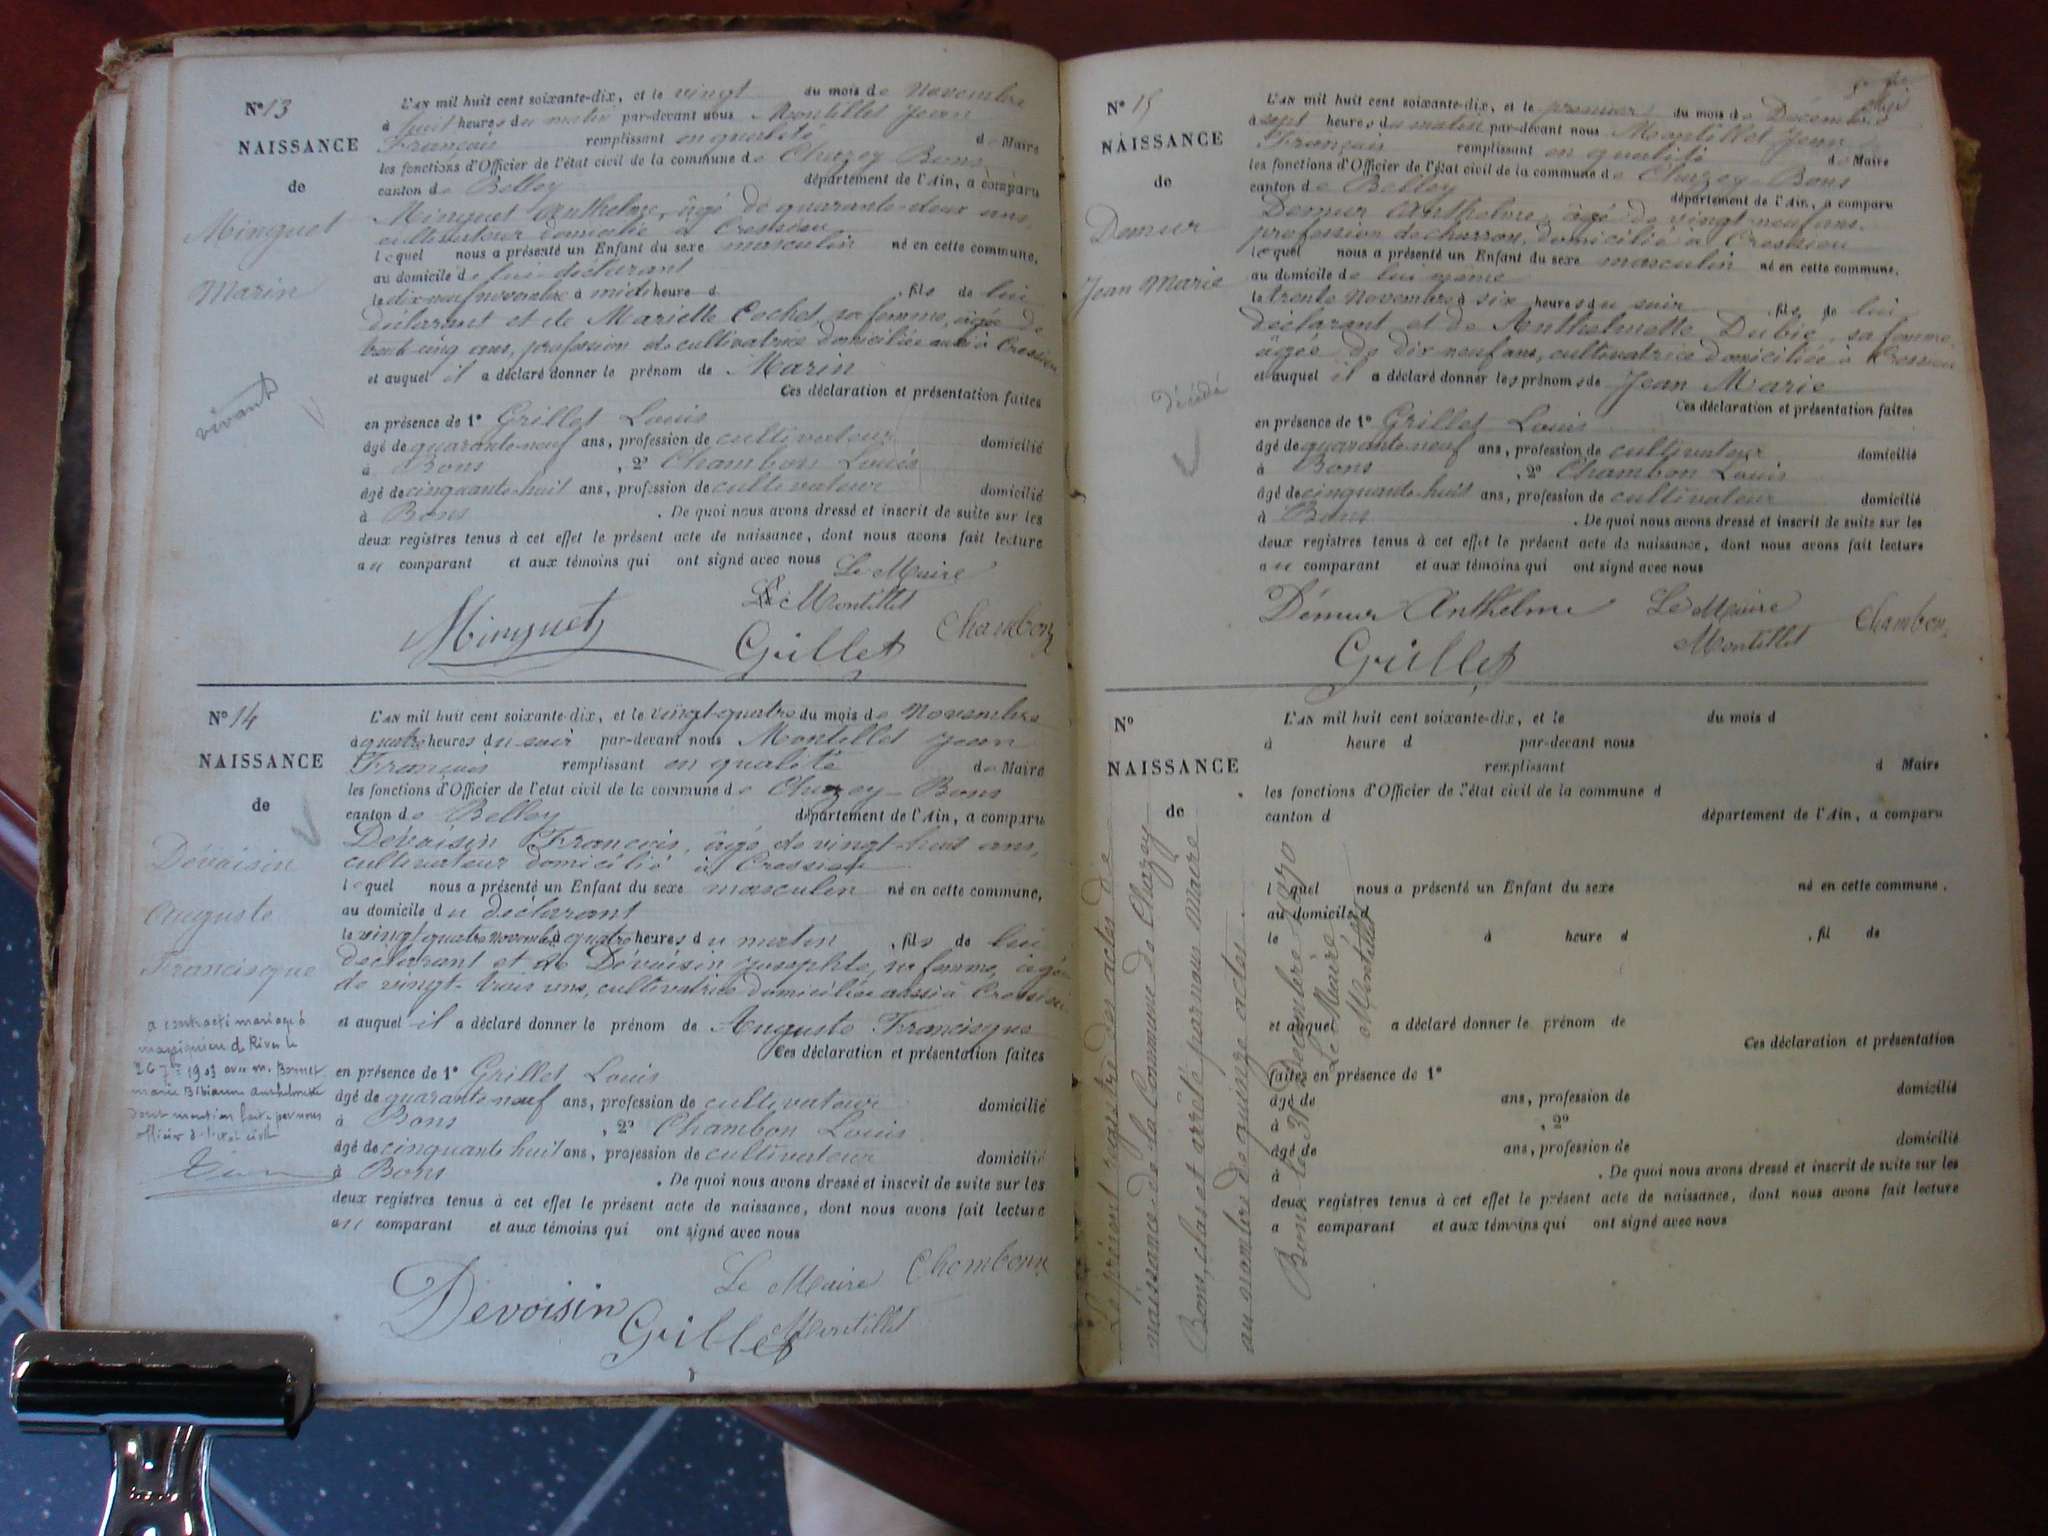 N° 13
NAISSANCE
de
Minguet
Marin
vivant
L'AN mil huit cent soixante-dix, et le vingt du mois de Novembre
à huit heures du matin par-devant nous Montillet Jean
François remplissant en qualité de Maire
les fonctions d'Officier de l'état civil de la commune de Chazey-Bons
canton de Belley département de l'Ain, a comparu
Minguet Anthelme, âgé de quarante-deux ans,
cultivateur domicilié à Cressieu
lequel nous a présenté un Enfant du sexe masculin né en cette commune,
au domicile de lui déclarant
le dix-neuf novembre à midi heure d , fils de lui
déclarant et de Mariette Cochet, sa femme, âgée de
trente-cinq ans, profession de cultivatrice domiciliée aussi à Cressieu
et auquel il a déclaré donner le prénom de Marin
Ces déclaration et présentation faites
en présence de 1° Grillet Louis
âgé de quarante-neuf ans, profession de cultivateur domicilié
à Bons , 2° Chambon Louis
âgé de cinquante-huit ans, profession de cultivateur domicilié
à Bons . De quoi nous avons dressé et inscrit de suite sur les
deux registres tenus à cet effet le présent acte de naissance, dont nous avons fait lecture
au comparant et aux témoins qui ont signé avec nous
Le Maire
Montillet
Minguet Grillet Chambon
N° 14
NAISSANCE
de
Dévoisin
Auguste
Francisque
a contracté mariage à
de Rives le
26 7bre 1903 avec m. Bonnet
marie Bibianne Anthelmette
dont mention faite par nous
officier d l'état civil
L'AN mil huit cent soixante-dix, et le vingt-quatre du mois de Novembre
à quatre heures du soir par-devant nous Montillet Jean
François remplissant en qualité de Maire
les fonctions d'Officier de l'état civil de la commune de Chazey-Bons
canton de Belley département de l'Ain, a comparu
Dévoisin François, âgé de vingt-huit ans,
cultivateur domicilié à Cressieu
lequel nous a présenté un Enfant du sexe masculin né en cette commune,
au domicile du déclarant
le vingt-quatre novembre à quatre heures du matin , fils de lui
déclarant et de Dévoisin Josephte, sa femme, âgée
de vingt-trois ans, cultivatrice domiciliée aussi à Cressieu
et auquel il a déclaré donner le prénom de Auguste Francisque
Ces déclaration et présentation faites
en présence de 1° Grillet Louis
âgé de quarante-neuf ans, profession de cultivateur domicilié
à Bons , 2° Chambon Louis
âgé de cinquante-huit ans, profession de cultivateur domicilié
à Bons . De quoi nous avons dressé et inscrit de suite sur les
deux registres tenus à cet effet le présent acte de naissance, dont nous avons fait lecture
au comparant et aux témoins qui ont signé avec nous
Le Maire Chambon
Devoisin Grillet Montillet
N° 15
NAISSANCE
de
Demur
Jean Marie
décédé
L'AN mil huit cent soixante-dix, et le premier du mois de Décembre
à sept heures du matin par-devant nous Montillet Jean
François remplissant en qualité de Maire
les fonctions d'Officier de l'état civil de la commune de Chazey-Bons
canton de Belley département de l'Ain, a comparu
Demur Anthelme, âgé de vingt-neuf ans,
profession de charron, domicilié à Cressieu
lequel nous a présenté un Enfant du sexe masculin né en cette commune,
au domicile de lui même
le trente Novembre à six heures du soir , fils de lui
déclarant et de Anthelmette Dubié, sa femme,
âgée de dix-neuf ans, cultivatrice domiciliée à Cressieu
et auquel il a déclaré donner les prénoms de Jean Marie
Ces déclaration et présentation faites
en présence de 1° Grillet Louis
âgé de quarante-neuf ans, profession de cultivateur domicilié
à Bons , 2° Chambon Louis
âgé de cinquante-huit ans, profession de cultivateur domicilié
à Bons . De quoi nous avons dressé et inscrit de suite sur les
deux registres tenus à cet effet le présent acte de naissance, dont nous avons fait lecture
au comparant et aux témoins qui ont signé avec nous
Démur Anthelme Le Maire Chambon
Grillet Montillet
N°
NAISSANCE
de
L'AN mil huit cent soixante-dix, et le du mois d
à heure d par-devant nous
remplissant d Maire
les fonctions d'Officier de l'état civil de la commune d
canton d département de l'Ain, a comparu
l quel nous a présenté un Enfant du sexe né en cette commune,
au domicile d
le à heure d , fil de
et auquel a déclaré donner le prénom de
Ces déclaration et présentation
faites en présence de 1°
âgé de ans, profession de domicilié
à , 2°
âgé de ans, profession de domicilié
à . De quoi nous avons dressé et inscrit de suite sur les
deux registres tenus à cet effet le présent acte de naissance, dont nous avons fait lecture
a comparant et aux témoins qui ont signé avec nous
Le présent registre des actes de
naissance de la Commune de Chazey-
Bons, clos et arrêté par nous maire
au nombre de quinze actes.
Bons le 31 Décembre 1870
Le Maire
Montillet